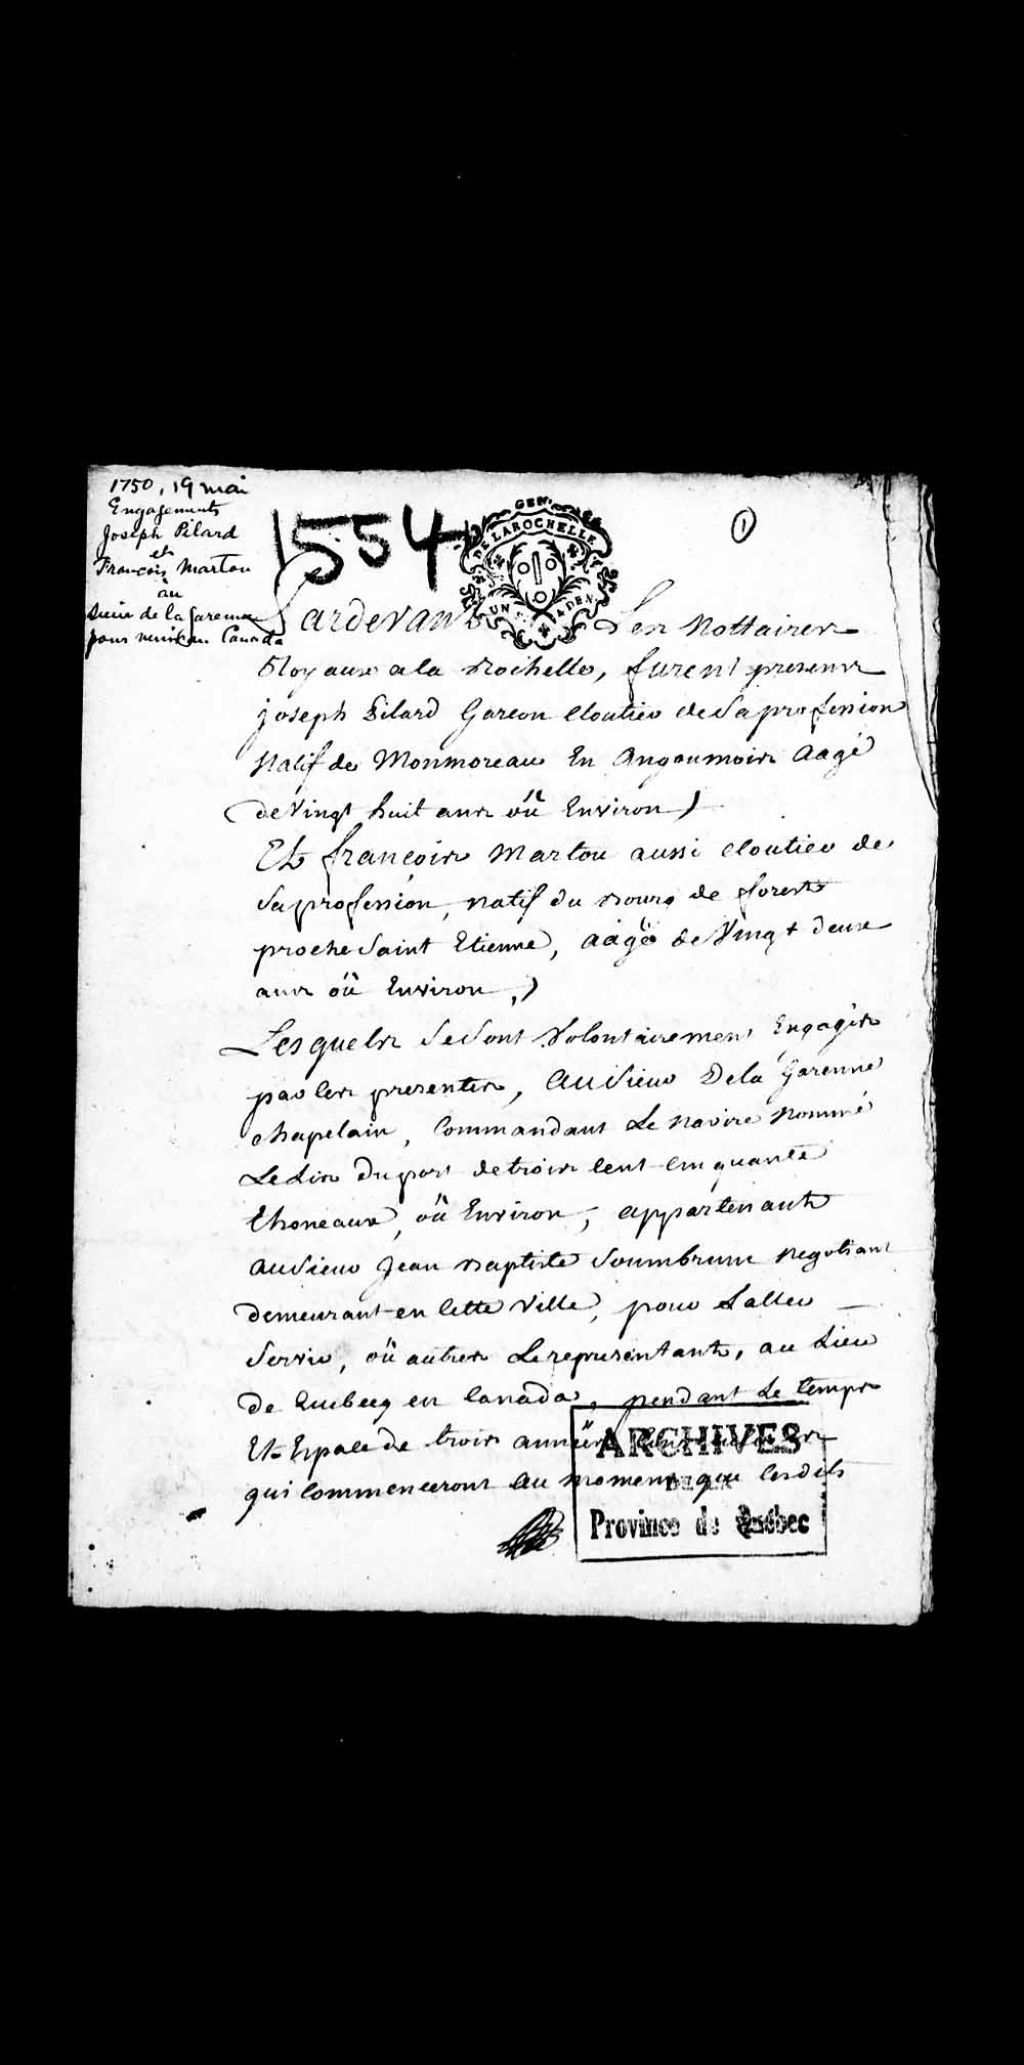 1750, 19 mai
Engagements
Joseph Pilard
et
François Martou
au
Sieur de la Garenne
pour venir en Canada
1554
GEN.
DE LAROCHELLE
UN S. 4 DEN.
1
Pardevant Les Nottaires
Royaux a la Rochelle, furent presens
joseph Pilard Garcon Cloutier de Sa profession
Natif de Monmoreau En Angoumois Aagé
de Vingt huit ans oü Environ)
Et françois Martou aussi cloutier de
Sa profession, natif du Bourg de forest
proche Saint Etienne, aagé de Vingt deux
ans oü Environ,)
Lesquels Se Sont Volontairement Engagés
par les presentes, Au Sieur Dela Garenne
Chapelain, Commandant Le Navire Nommé
Le Lis Du port de trois Cent Cinquante
Thoneaux, oü Environ, appartenant
au Sieur Jean Baptiste Soumbrum Negotiant
demeurant en Cette Ville, pour Laller
Servir, oü autres Le representants, au Lieu
de Quebecq en Canada, pendant Le temps
Et Espace de trois années
qui Commenceront Au moment que lesdits
ARCHIVES
DE LA
Province de Québec